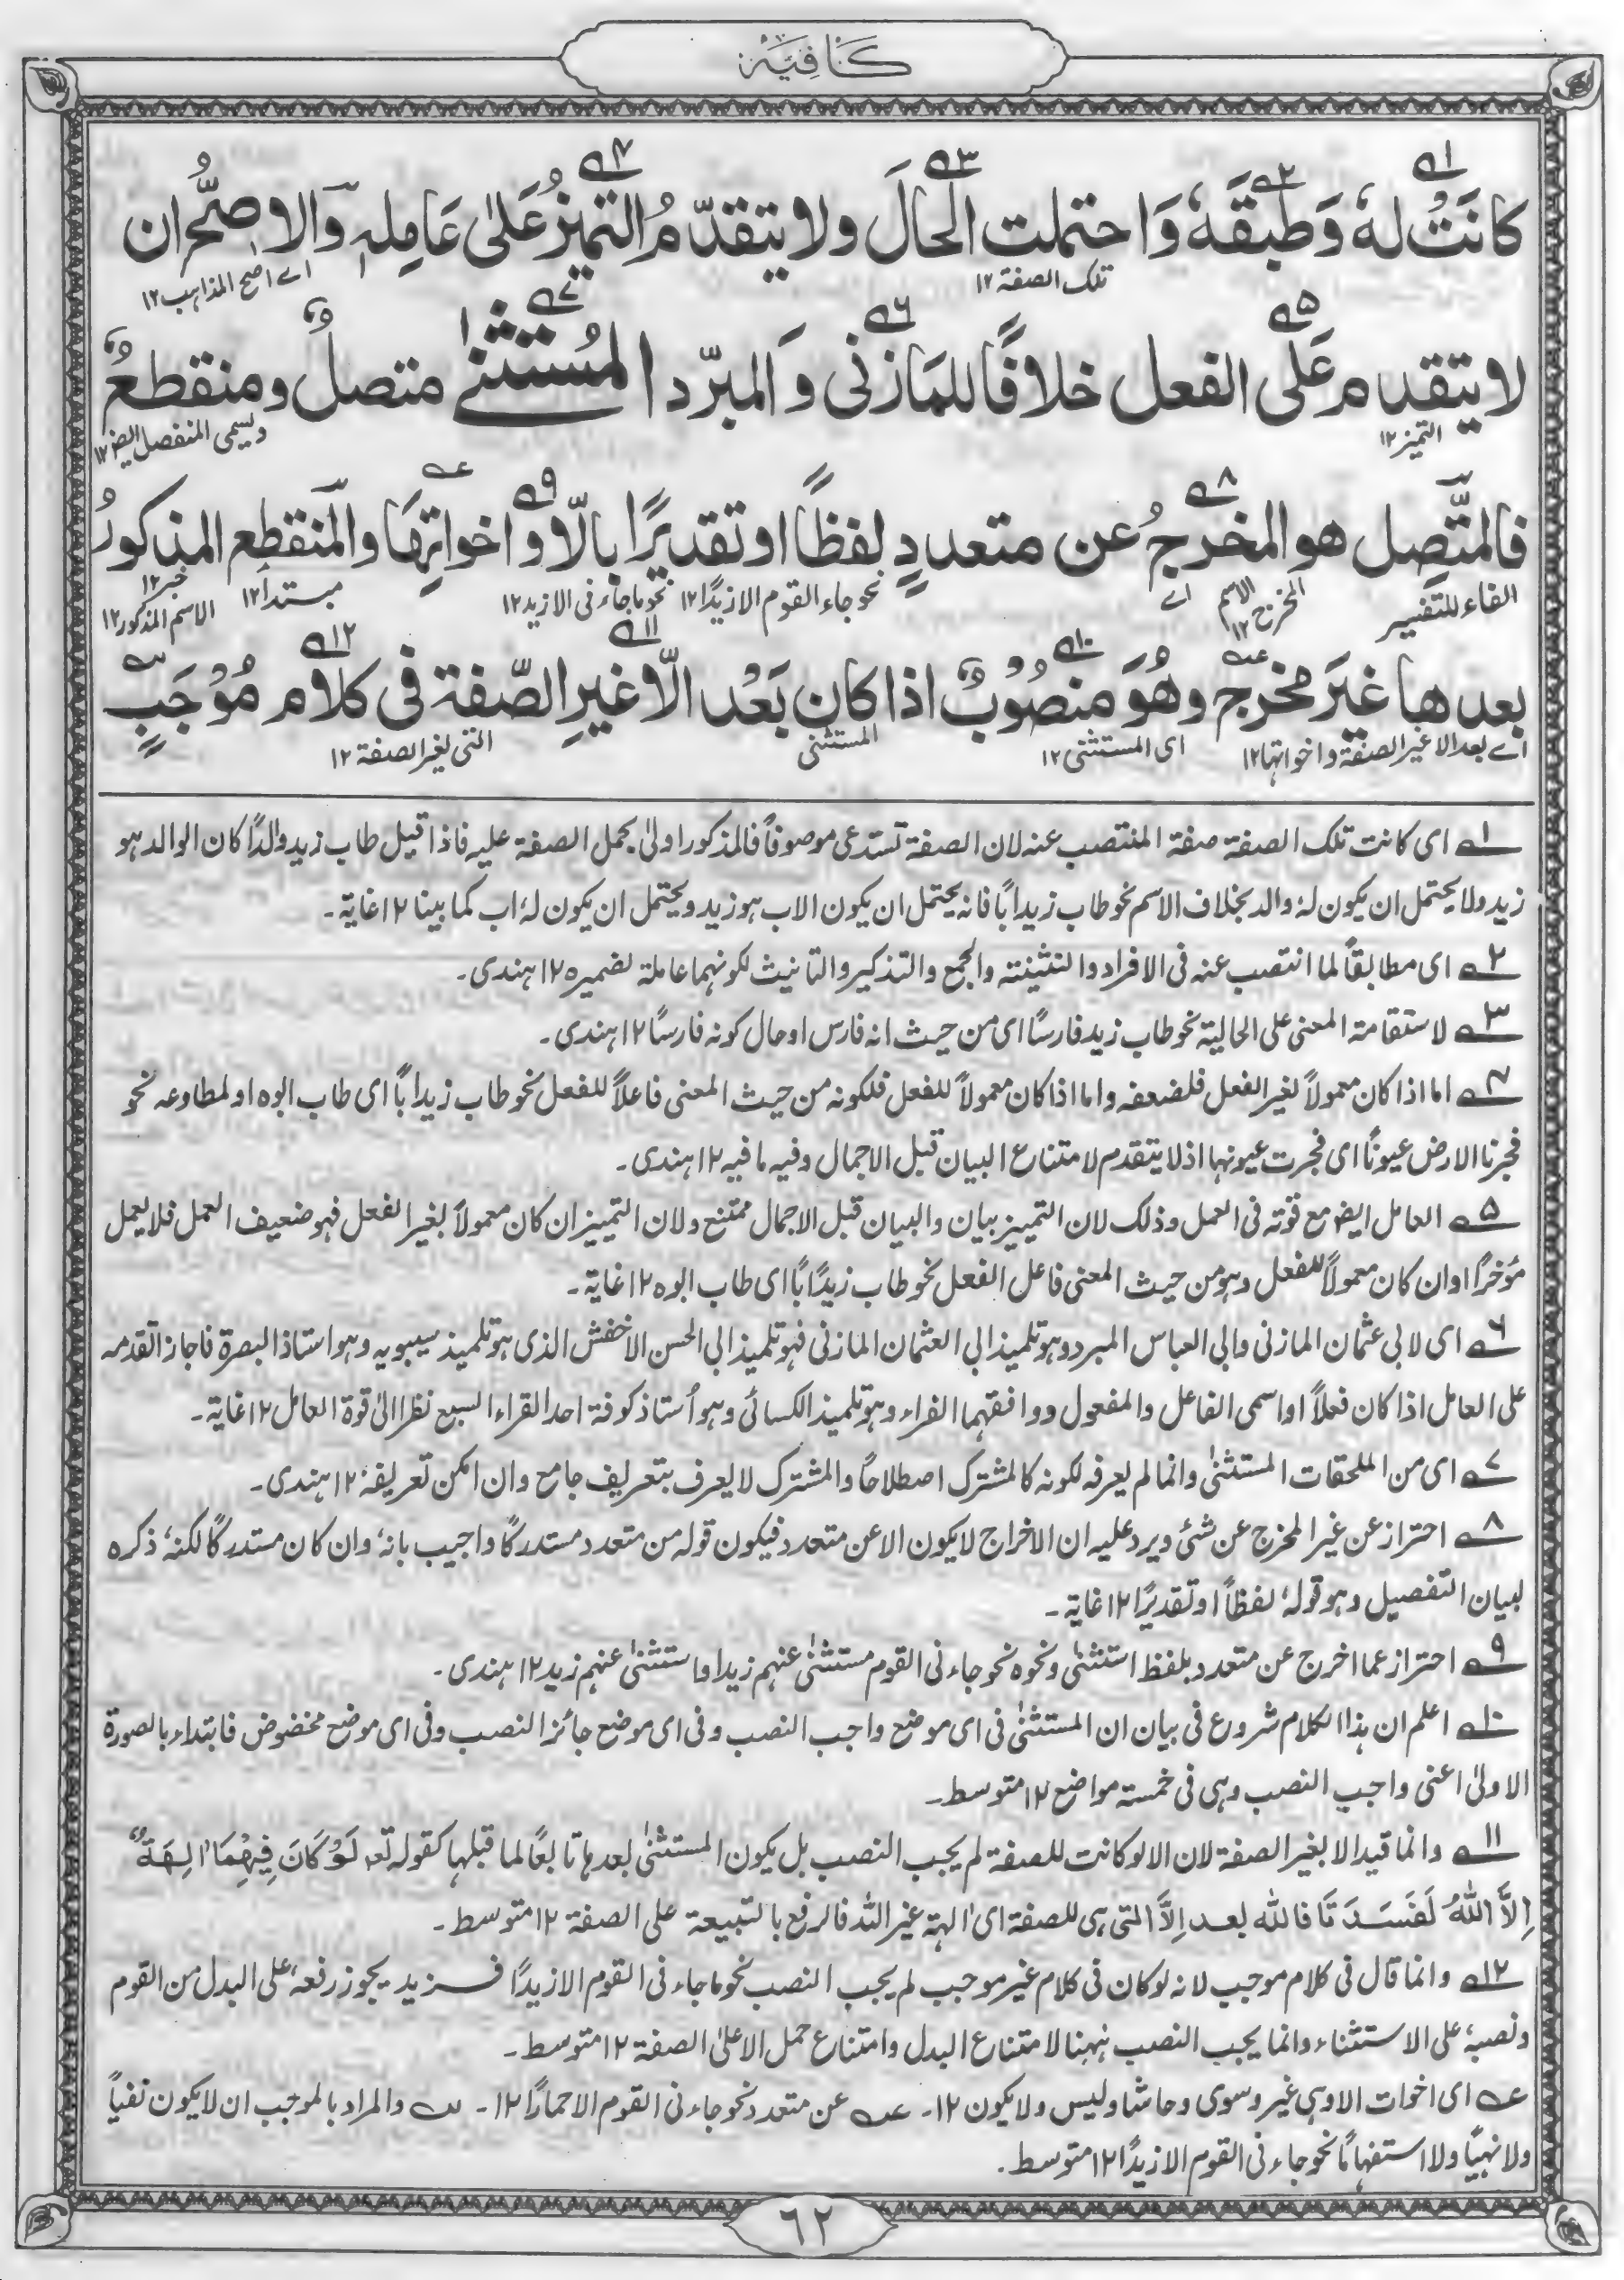 كافية
كانَتْ لهٗ وَطبقَهٗ وَاحتملت الحالَ ولا يتقدّمُ التميزُ عَلىٰ عَامِلِهٖ وَالاصحُّ ان
تلك الصفة ١٢ اے اصح المذاہب ١٢
لا يتقدم عَلَى الفعل خلافًا للمَازنى وَالمبرّد المُستثنٰے متصلٌ ومنقطعٌ
التميز ١٢ ويسمى المنفصل ايضا ١٢
فالمتَّصِل هو المخرجُ عن متعددٍ لفظًا او تقديرًا بالّا واخواتِهَا والمَنقطِع المذكورُ
الفاء للتفسير اے الاسم المخرج ١٢ نحو جاء القوم الا زيدًا ١٢ نحو ما جاءنى الا زيد ١٢ مبتدأ ١٢ خبر ١٢ الاسم المذكور ١٢
بعدها غيَرَ مخرج وهُوَ منصُوبٌ اذا كان بَعْد الّا غيرِ الصّفة فى كلام مُوْجَبٍ
اے بعد الا غير الصفة واخواتها ١٢ اى المستثنى ١٢ المستثنى التى لغير الصفة ١٢
١ے اى كانت تلك الصفة صفة المنتصب عنه لان الصفة تستدعى موصوفاً فالمذكور اولىٰ بحمل الصفة عليه فاذا قيل طاب زيد والدًا كان الوالد هو
زيد ولا يحتمل ان يكون لهٗ والد بخلاف الاسم نحو طاب زيد اباً فانه يحتمل ان يكون الاب هو زيد ويحتمل ان يكون لهٗ اب كما بينا ١٢ غاية۔
٢ے اى مطابقاً لما انتصب عنه فى الافراد والتثنية والجمع والتذكير والتانيث لكونهما عاملة لضميره ١٢ ہندى۔
٣ے لاستقامة المعنى على الحالية نحو طاب زيد فارسًا اى من حيث انه فارس او حال كونه فارسًا ١٢ ہندى۔
٤ے اما اذا كان معمولاً لغير الفعل فلضعفه واما اذا كان معمولاً للفعل فلكونه من حيث المعنى فاعلاً للفعل نحو طاب زيد اباً اى طاب ابوه او لمطاوعه نحو
فجرنا الارض عيونًا اى فجرت عيونها اذ لا يتقدم لامتناع البيان قبل الاجمال وفيه ما فيه ١٢ ہندى۔
٥ے العامل ايضا مع قوته فى العمل وذلك لان التمييز بيان والبيان قبل الاجمال ممتنع ولان التمييز ان كان معمولاً بغير الفعل فهو ضعيف العمل فلا يعمل
مؤخرًا وان كان معمولاً للفعل وهو من حيث المعنى فاعل الفعل نحو طاب زيدًا باً اى طاب ابوه ١٢ غاية۔
٦ے اى لابى عثمان المازنى وابى العباس المبرد وهو تلميذ ابى العثمان المازنى فهو تلميذ ابى الحسن الاخفش الذى هو تلميذ سيبويه وهو استاذ البصرة فاجاز تقدمه
على العامل اذا كان فعلاً او اسمى الفاعل والمفعول ووافقهما الفراء وهو تلميذ الكسائى وهو اُستاذ كوفة احد القراء السبع نظرا الىٰ قوة العامل ١٢ غاية۔
٧ے اى من الملحقات المستثنىٰ وانما لم يعرفه لكونه كالمشترك اصطلاحاً والمشترك لا يعرف بتعريف جامع وان امكن تعريفهٗ ١٢ ہندى۔
٨ے احتراز عن غير المخرج عن شئى ويرد عليه ان الاخراج لا يكون الا عن متعدد فيكون قوله من متعدد مستدركًا واجيب بانهٗ وان كان مستدركًا لكنهٗ ذكره
لبيان التفصيل وهو قولهٗ لفظاً او تقديرًا ١٢ غاية۔
٩ے احتراز عما اخرج عن متعدد بلفظ استثنىٰ ونحوه نحو جاءنى القوم مستثنىٰ عنهم زيد او استثنىٰ عنهم زيد ١٢ ہندى۔
١٠ے اعلم ان ہذا الكلام شروع فى بيان ان المستثنىٰ فى اى موضع واجب النصب وفى اى موضع جائز النصب وفى اى موضع مخفوض فابتداء بالصورة
الاولىٰ اعنى واجب النصب وہى فى خمسة مواضع ١٢ متوسط۔
١١ے وانما قيد الا بغير الصفة لان الا لو كانت للصفة لم يجب النصب بل يكون المستثنىٰ بعدہا تابعًا لما قبلها كقوله تعہ لَوْ كَانَ فِيْهِمَا اٰلِهَةٌ
اِلاَّ اللّٰهُ لَفَسَدَتَا فاللّٰه بعد اِلاَّ التى ہى للصفة اى اٰلهة غير اللّٰه فالرفع بالتبيعة على الصفة ١٢ متوسط۔
١٢ے وانما قال فى كلام موجب لانه لو كان فى كلام غير موجب لم يجب النصب نحو ما جاءنى القوم الا زيدًا فزيد يجوز رفعهٗ على البدل من القوم
ونصبهٗ على الاستثناء وانما يجب النصب ہٰہنا لامتناع البدل وامتناع حمل الا على الصفة ١٢ متوسط۔
عہ اى اخوات الا وہى غير وسوى وحاشا وليس ولا يكون ١٢۔ عہ عن متعدد نحو جاءنى القوم الا حمارًا ١٢۔ سہ والمراد بالموجب ان لا يكون نفياً
ولا نہيًا ولا استفہامًا نحو جاءنى القوم الا زيدًا ١٢ متوسط۔
٦٢